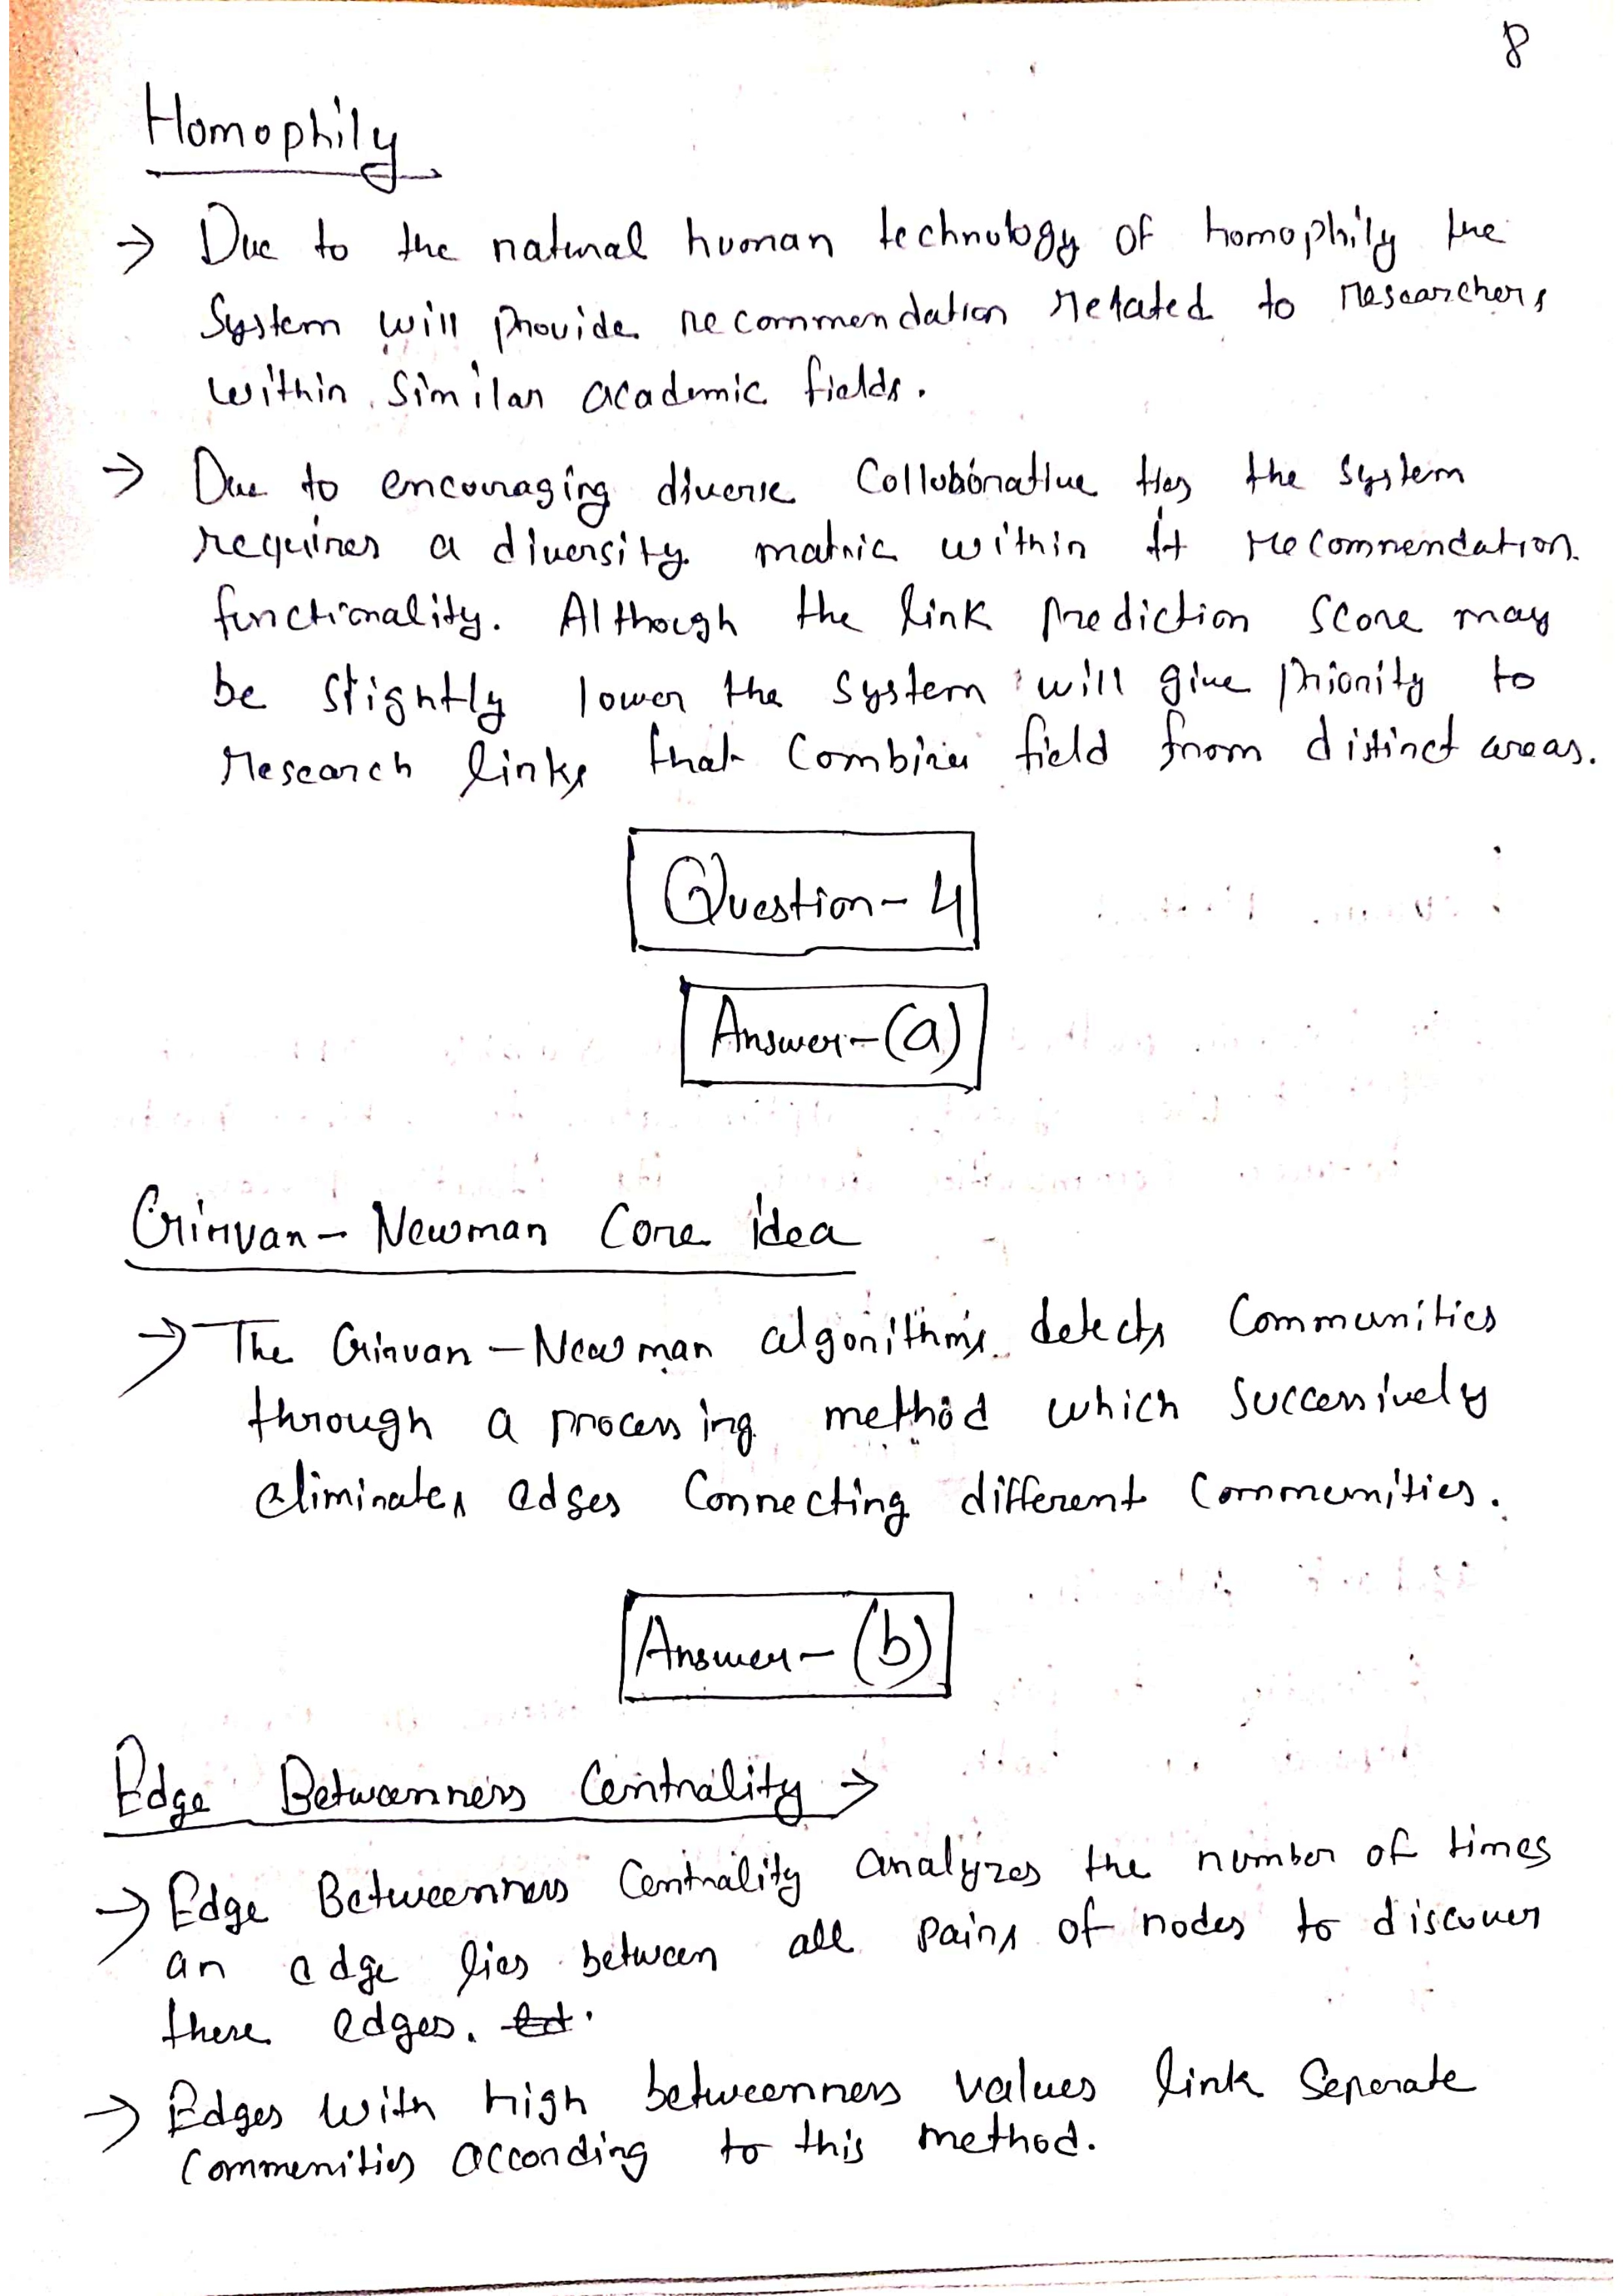 8
Homophily
→ Due to the natural human technology of homophily the
System will provide recommendation related to researchers
within similar academic fields.
→ Due to encouraging diverse Collaborative ties the system
requires a diversity matric within it recommendation
functionality. Although the link prediction score may
be slightly lower the system will give priority to
research links that combines field from distinct areas.
Question-4
Answer-(a)
Girvan-Newman Core idea
→ The Girvan-Newman algorithms detects Communities
through a processing method which successively
eliminates edges connecting different communities.
Answer-(b)
Edge Betweenness Centrality →
→ Edge Betweenness Centrality analyzes the number of times
an edge lies between all pairs of nodes to discover
these edges.
→ Edges with high betweenness values link Seperate
Communities according to this method.